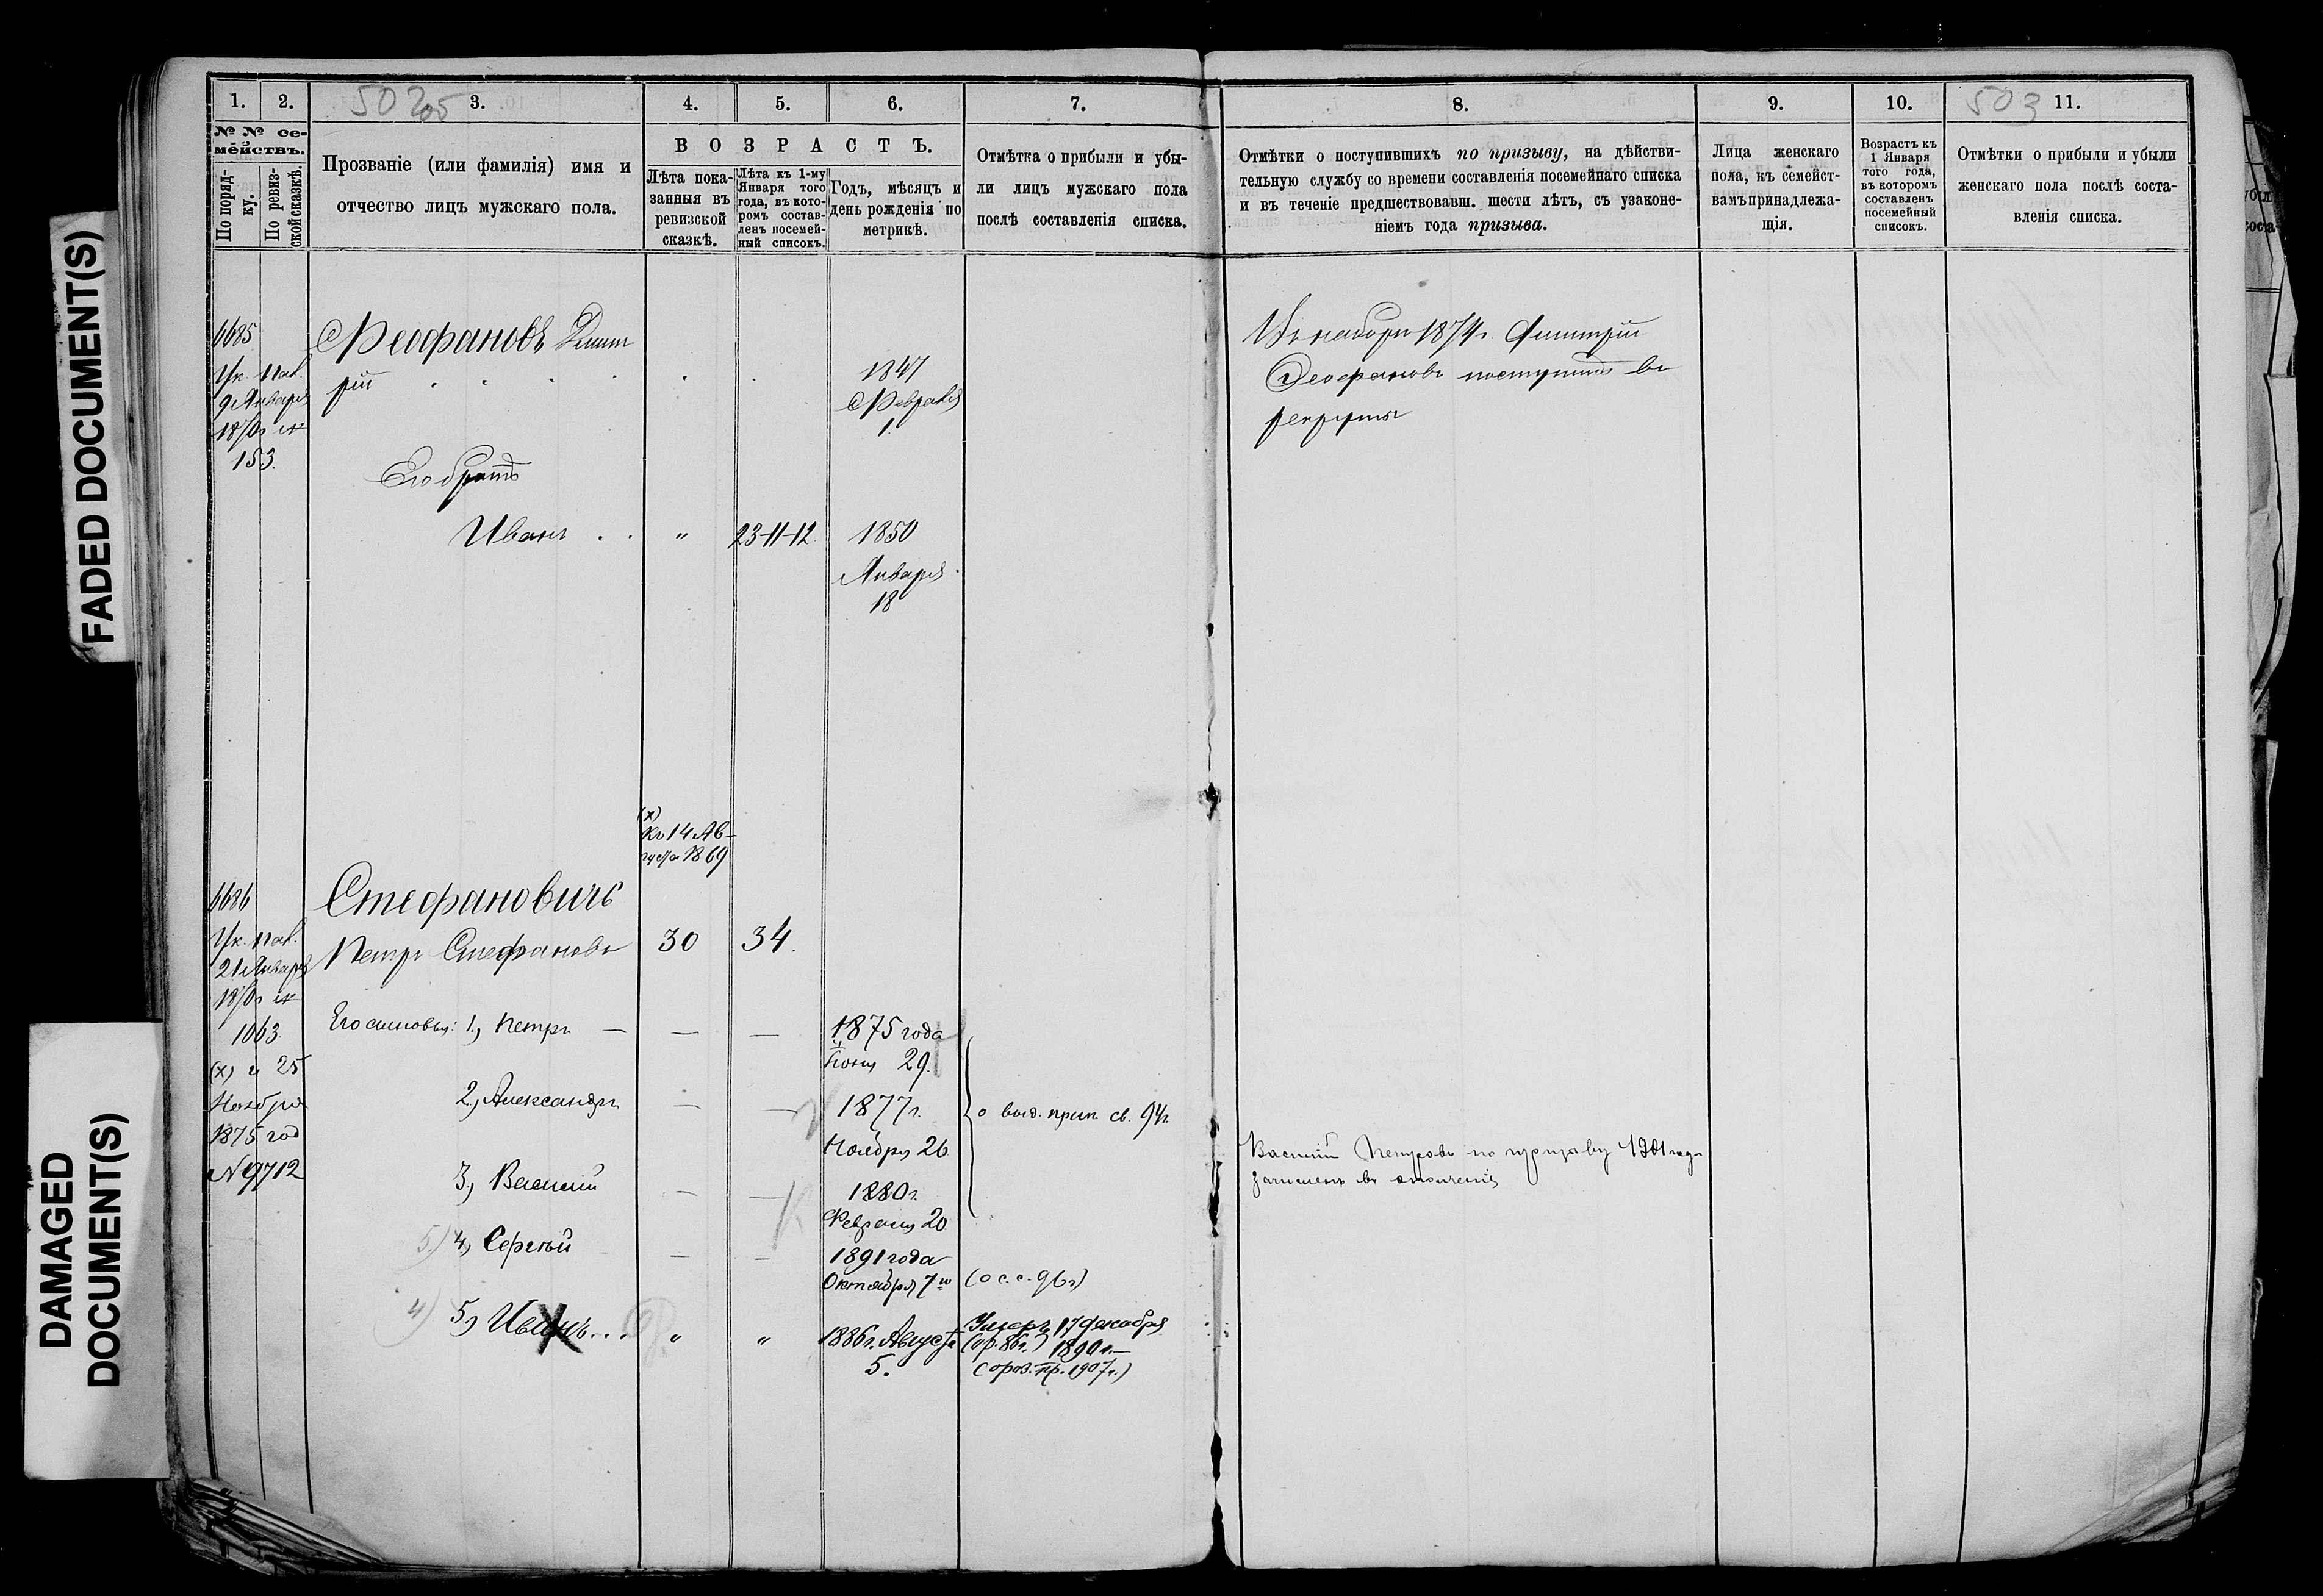 FADED DOCUMENT(S)
DAMAGED
DOCUMENT(S)
1. 2. 3. 4. 5. 6. 7.
502
205
№ № се-
мействъ.
По поряд-
ку.
По ревиз-
ской сказкѣ.
Прозваніе (или фамилія) имя и
отчество лицъ мужскаго пола.
ВОЗРАСТЪ.
Лѣта пока-
занныя въ
ревизской
сказкѣ.
Лѣта къ 1-му
Января того
года, въ кото-
ромъ состав-
ленъ посемей-
ный списокъ.
Годъ, мѣсяцъ и
день рожденія по
метрикѣ.
Отмѣтка о прибыли и убы-
ли лицъ мужскаго пола
послѣ составленія списка.
6685
Ук. Пал.
9 Января
1870 г №
153.
Ѳеофановъ Димит
рій
1847
Февраля
1.
Его братъ
Иванъ . . „ 23-11-12. 1850
Января
18
(х)
Къ 14 Ав-
густа 1869
6686
Ук. Пал.
21 Января
1870 г №
1063.
(х) и 25
Ноября
1875 год
№ 9712
Стефановичъ
Петръ Стефановъ 30 34.
Его сыновья: 1., Петръ — — — 1875 года
Іюня 29.
2., Александръ — — 1877 г.
Ноября 26
о выд. прип. св. 94 г.
3., Василій — — 1880 г.
Февраля 20.
5.) 4., Сергѣй — — 1891 года
Октября 7 го (о с. с. 96 г)
4) 5., Иванъ... „ „ 1886 г. Августа
5.
Умеръ 17 декабря
(ор. 86 г.) 1890 г.—
(о роз. пр. 1907 г.)
8. 9. 10. 11.
503
Отмѣтки о поступившихъ по призыву, на дѣйстви-
тельную службу со времени составленія посемейнаго списка
и въ теченіе предшествовавш. шести лѣтъ, съ узаконе-
ніемъ года призыва.
Лица женскаго
пола, къ семейст-
вамъ принадлежа-
щія.
Возрастъ къ
1 Января
того года,
въ которомъ
составленъ
посемейный
списокъ.
Отмѣтки о прибыли и убыли
женскаго пола послѣ соста-
вленія списка.
Въ наборъ 1874 г. Димитрій
Ѳеофановъ поступилъ въ
рекруты
Василій Петровъ по призыву 1901 года
зачисленъ въ ополченіе